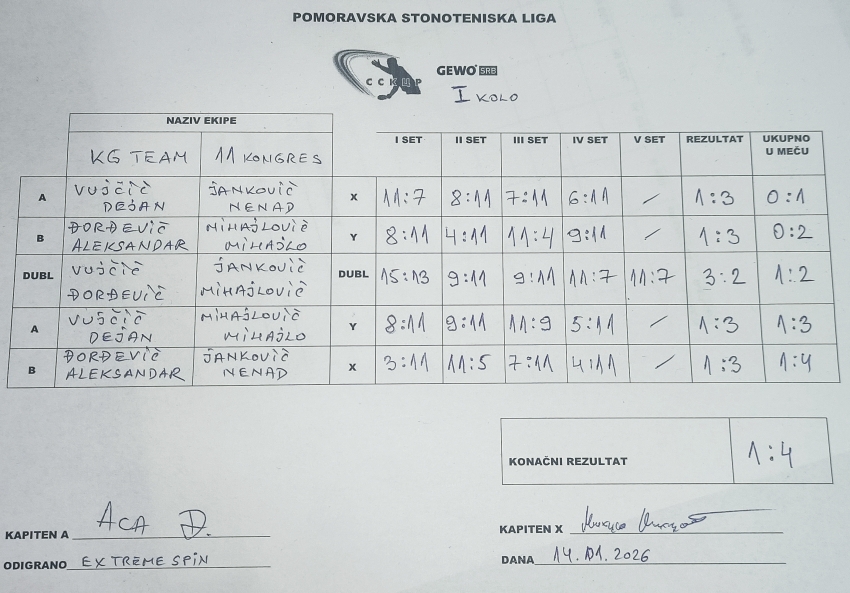 POMORAVSKA STONOTENISKA LIGA
ССКЦР
GEWO SRB
I KOLO
NAZIV EKIPE
KG TEAM 11 KONGRES I SET II SET III SET IV SET V SET REZULTAT UKUPNO U MEČU
A VUJČIĆ DEJAN JANKOVIĆ NENAD X 11:7 8:11 7:11 6:11 / 1:3 0:1
B ĐORĐEVIĆ ALEKSANDAR MIHAJLOVIĆ MIHAJLO Y 8:11 4:11 11:4 9:11 / 1:3 0:2
DUBL VUJČIĆ ĐORĐEVIĆ JANKOVIĆ MIHAJLOVIĆ DUBL 15:13 9:11 9:11 11:7 11:7 3:2 1:2
A VUJČIĆ DEJAN MIHAJLOVIĆ MIHAJLO Y 8:11 9:11 11:9 5:11 / 1:3 1:3
B ĐORĐEVIĆ ALEKSANDAR JANKOVIĆ NENAD X 3:11 11:5 7:11 4:11 / 1:3 1:4
KONAČNI REZULTAT 1:4
KAPITEN A ACA D. KAPITEN X
ODIGRANO EXTREME SPIN DANA 14.01.2026